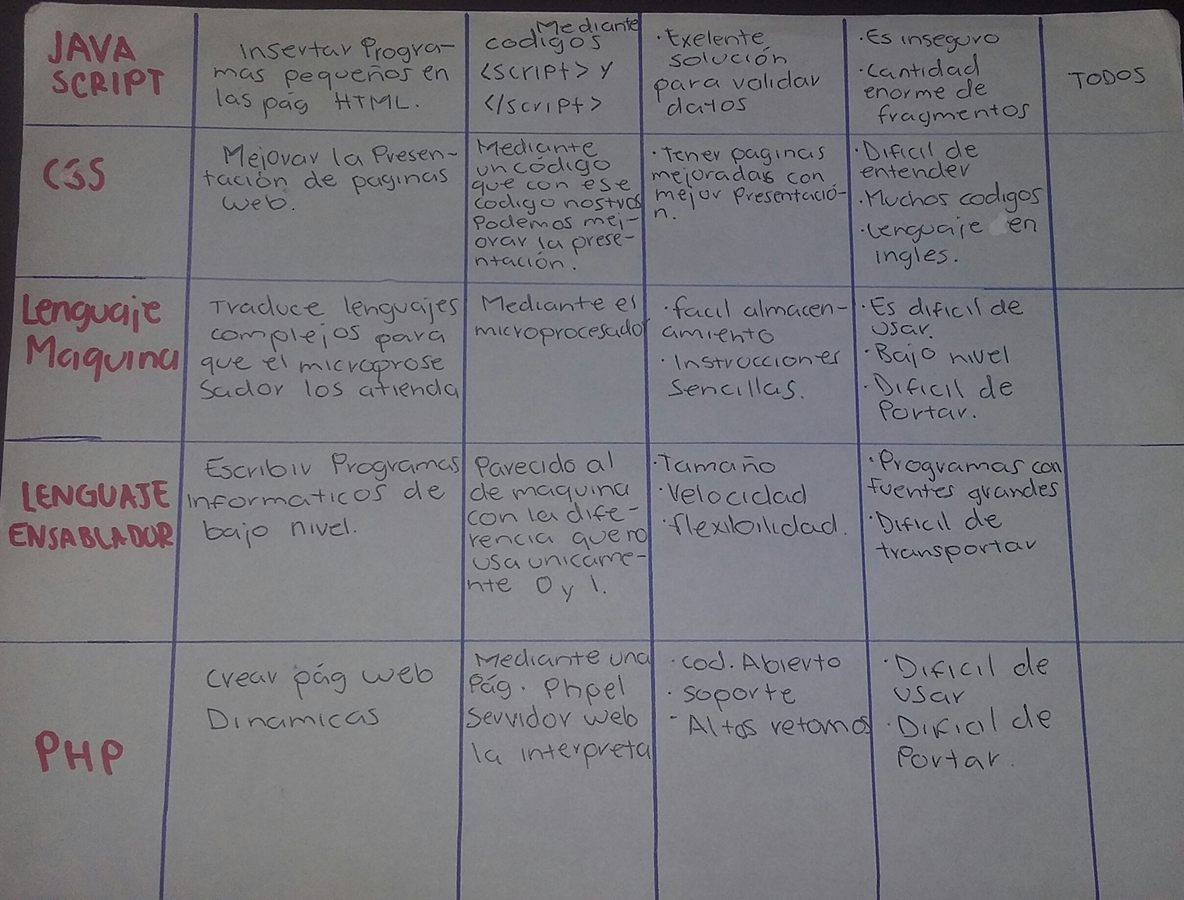 JAVA
SCRIPT
Insertar Progra-
mas pequeños en
las pág HTML.
Mediante
codigos
<script> y
</script>
·Exelente
solución
para validar
datos
·Es inseguro
·Cantidad
enorme de
fragmentos
TODOS
CSS
Mejorar la Presen-
tación de paginas
web.
Mediante
un código
que con ese
codigo nostros
Podemos mej-
orar la prese-
ntación.
·Tener paginas
mejoradas con
mejor Presentació-
n.
·Dificil de
entender
·Muchos codigos
·Lenguaje en
ingles.
Lenguaje
Maquina
Traduce lenguajes
complejos para
que el microprose
sador los atienda
Mediante el
microprocesador
·facil almacen-
amiento
·Instrucciones
Sencillas.
·Es dificil de
usar.
·Bajo nivel
·Dificil de
Portar.
LENGUAJE
ENSABLADOR
Escribir Programas
informaticos de
bajo nivel.
Parecido al
de maquina
con la dife-
rencia que no
usa unicame-
nte 0 y 1.
·Tamaño
·Velocidad
·flexibilidad.
·Programas con
fuentes grandes
·Dificil de
transportar
PHP
Crear pág web
Dinamicas
Mediante una
Pág. Phpel
Servidor web
la interpreta
·cod. Abierto
·soporte
·Altos retornos
·Dificil de
usar
·Dificial de
Portar.